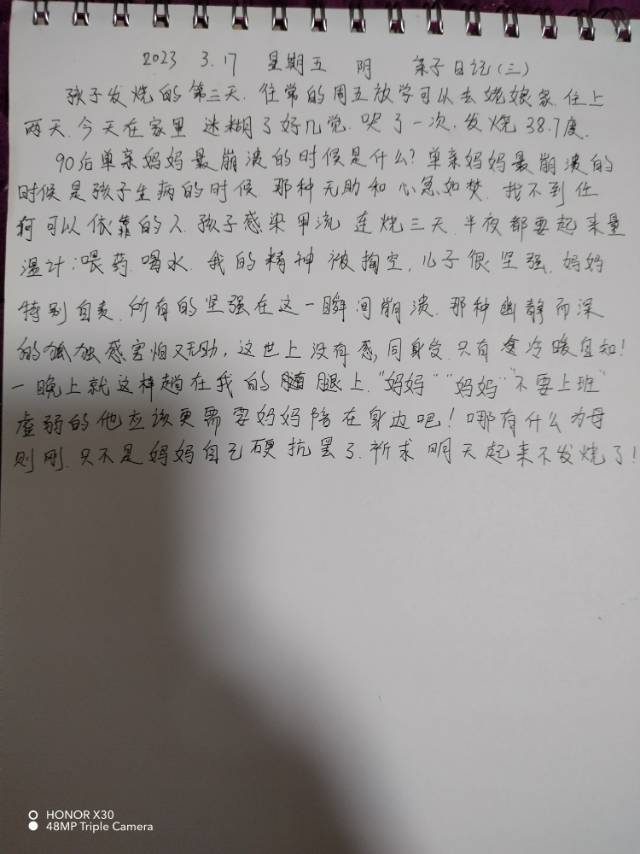 2023 3.17 星期五 阴 亲子日记(三)
孩子发烧的第三天.往常的周五放学可以去姥娘家.住上
两天.今天在家里 迷糊了好几觉.哭了一次.发烧38.7度.
90后单亲妈妈最崩溃的时候是什么?单亲妈妈最崩溃的
时候是孩子生病的时候.那种无助和心急如焚.找不到任
何可以依靠的人.孩子感染甲流 连烧三天.半夜都要起来量
温计:喂药.喝水.我的精神被掏空.儿子很坚强.妈妈
特别自责.所有的坚强在这一瞬间崩溃.那种幽静而深
的孤独感害怕又无助,这世上没有感同身受.只有 冷暖自知!
一晚上就这样趟在我的腿上."妈妈""妈妈"不要上班"
虚弱的他应该更需要妈妈陪在身边吧!哪有什么为母
则刚.只不是妈妈自己硬抗罢了.祈求明天起来不发烧了!
HONOR X30
48MP Triple Camera